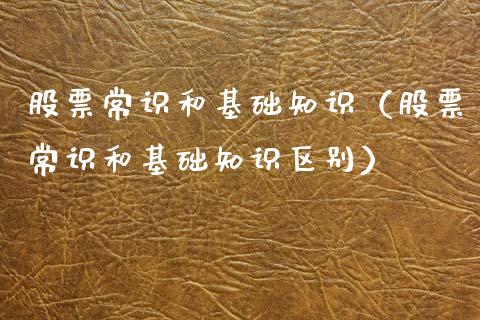 股票常识和基础知识（股票
常识和基础知识区别）